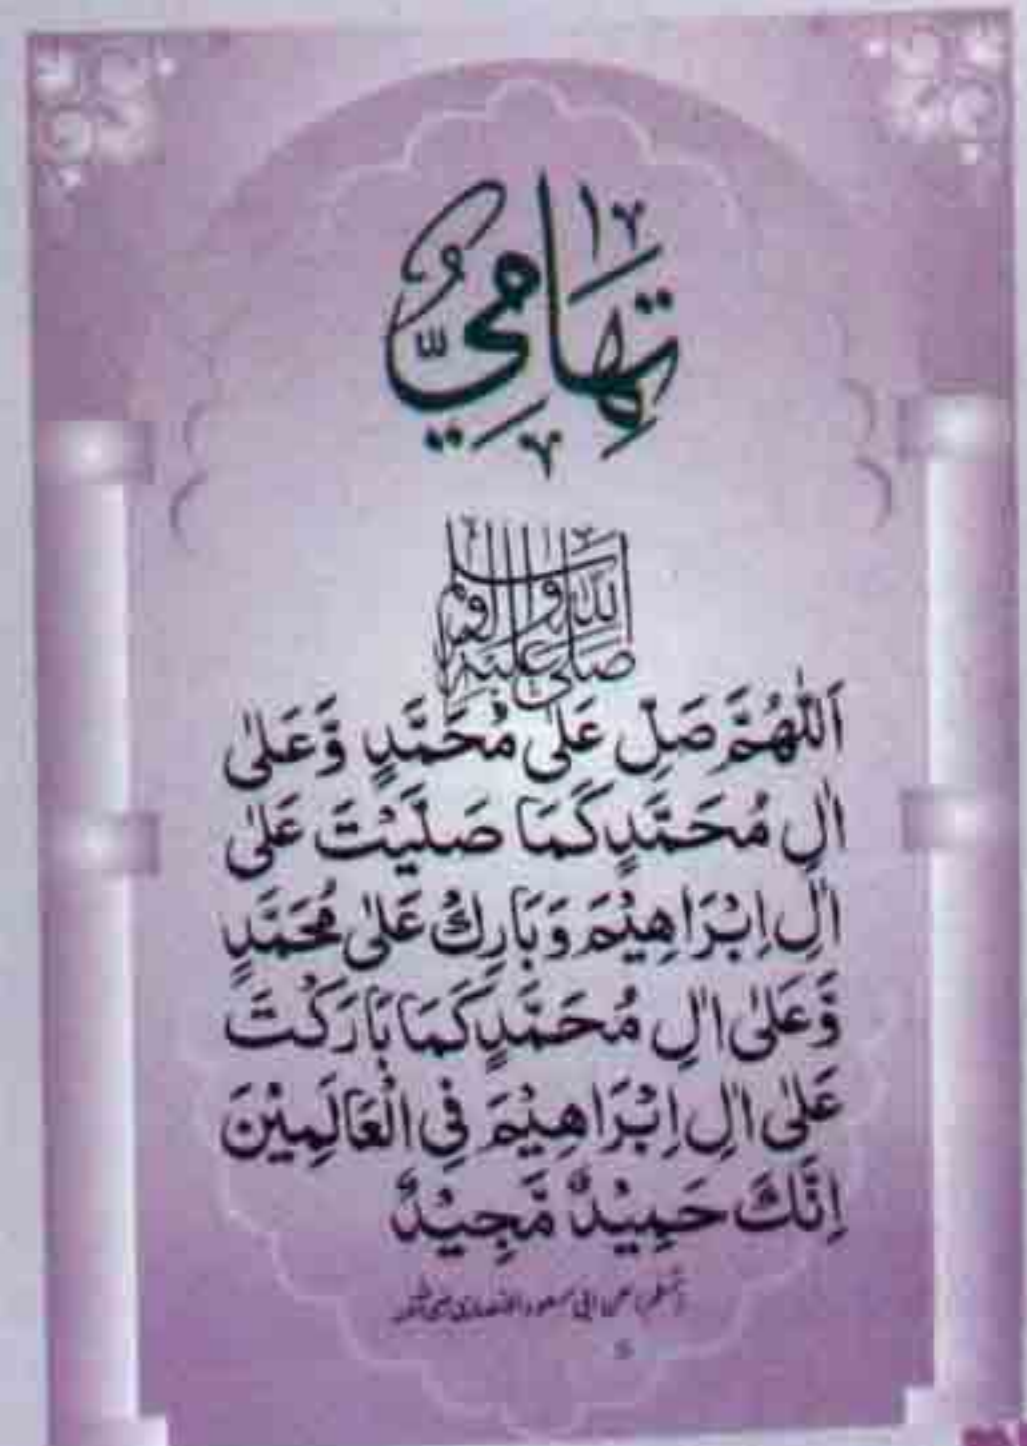 تِهَامِيٌّ
صلى الله عليه واله وسلم
اَللّٰهُمَّ صَلِّ عَلٰى مُحَمَّدٍ وَّعَلٰى
اٰلِ مُحَمَّدٍ كَمَا صَلَّيْتَ عَلٰى
اٰلِ اِبْرَاهِيْمَ وَبَارِكْ عَلٰى مُحَمَّدٍ
وَّعَلٰى اٰلِ مُحَمَّدٍ كَمَا بَارَكْتَ
عَلٰى اٰلِ اِبْرَاهِيْمَ فِي الْعَالَمِيْنَ
اِنَّكَ حَمِيْدٌ مَّجِيْدٌ
(مسلم) عن ابی مسعود الانصاری